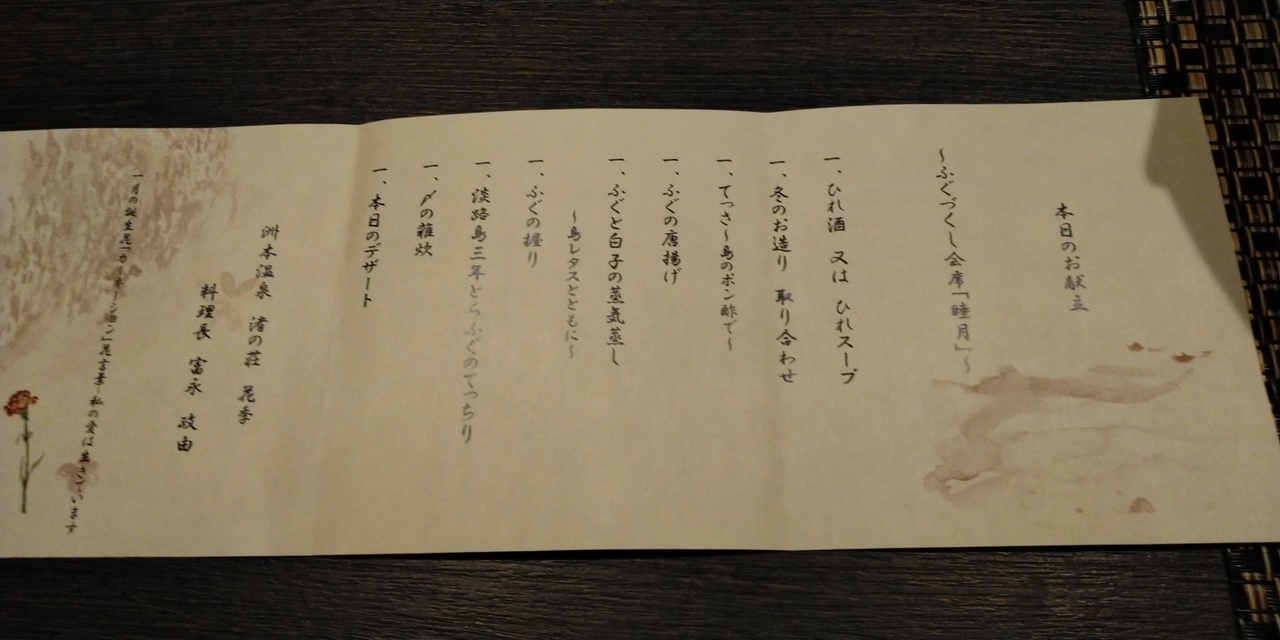 本日のお献立
～ふぐづくし会席「睦月」～
一、ひれ酒 又は ひれスープ
一、冬のお造り 取り合わせ
一、てっさ～島のポン酢で～
一、ふぐの唐揚げ
一、ふぐと白子の蒸気蒸し
～島レタスとともに～
一、ふぐの握り
一、淡路島三年とらふぐのてっちり
一、〆の雑炊
一、本日のデザート
洲本温泉 渚の荘 花季
料理長 富永 政由
一月の誕生花「カーネーション」花言葉―私の愛は生きています